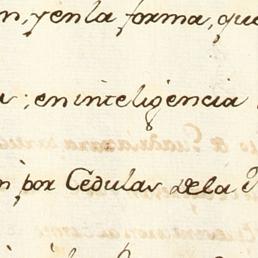 n, y en la forma, que
; en inteligencia
n por Cedulas de la